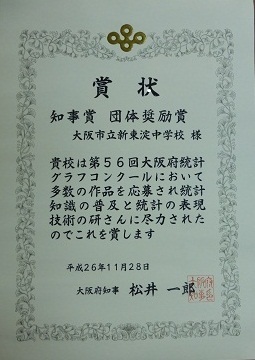 賞状
知事賞 団体奨励賞
大阪市立新東淀中学校 様
貴校は第５６回大阪府統計
グラフコンクールにおいて
多数の作品を応募され統計
知識の普及と統計の表現
技術の研さんに尽力された
のでこれを賞します
平成26年11月28日
大阪府知事 松井 一郎